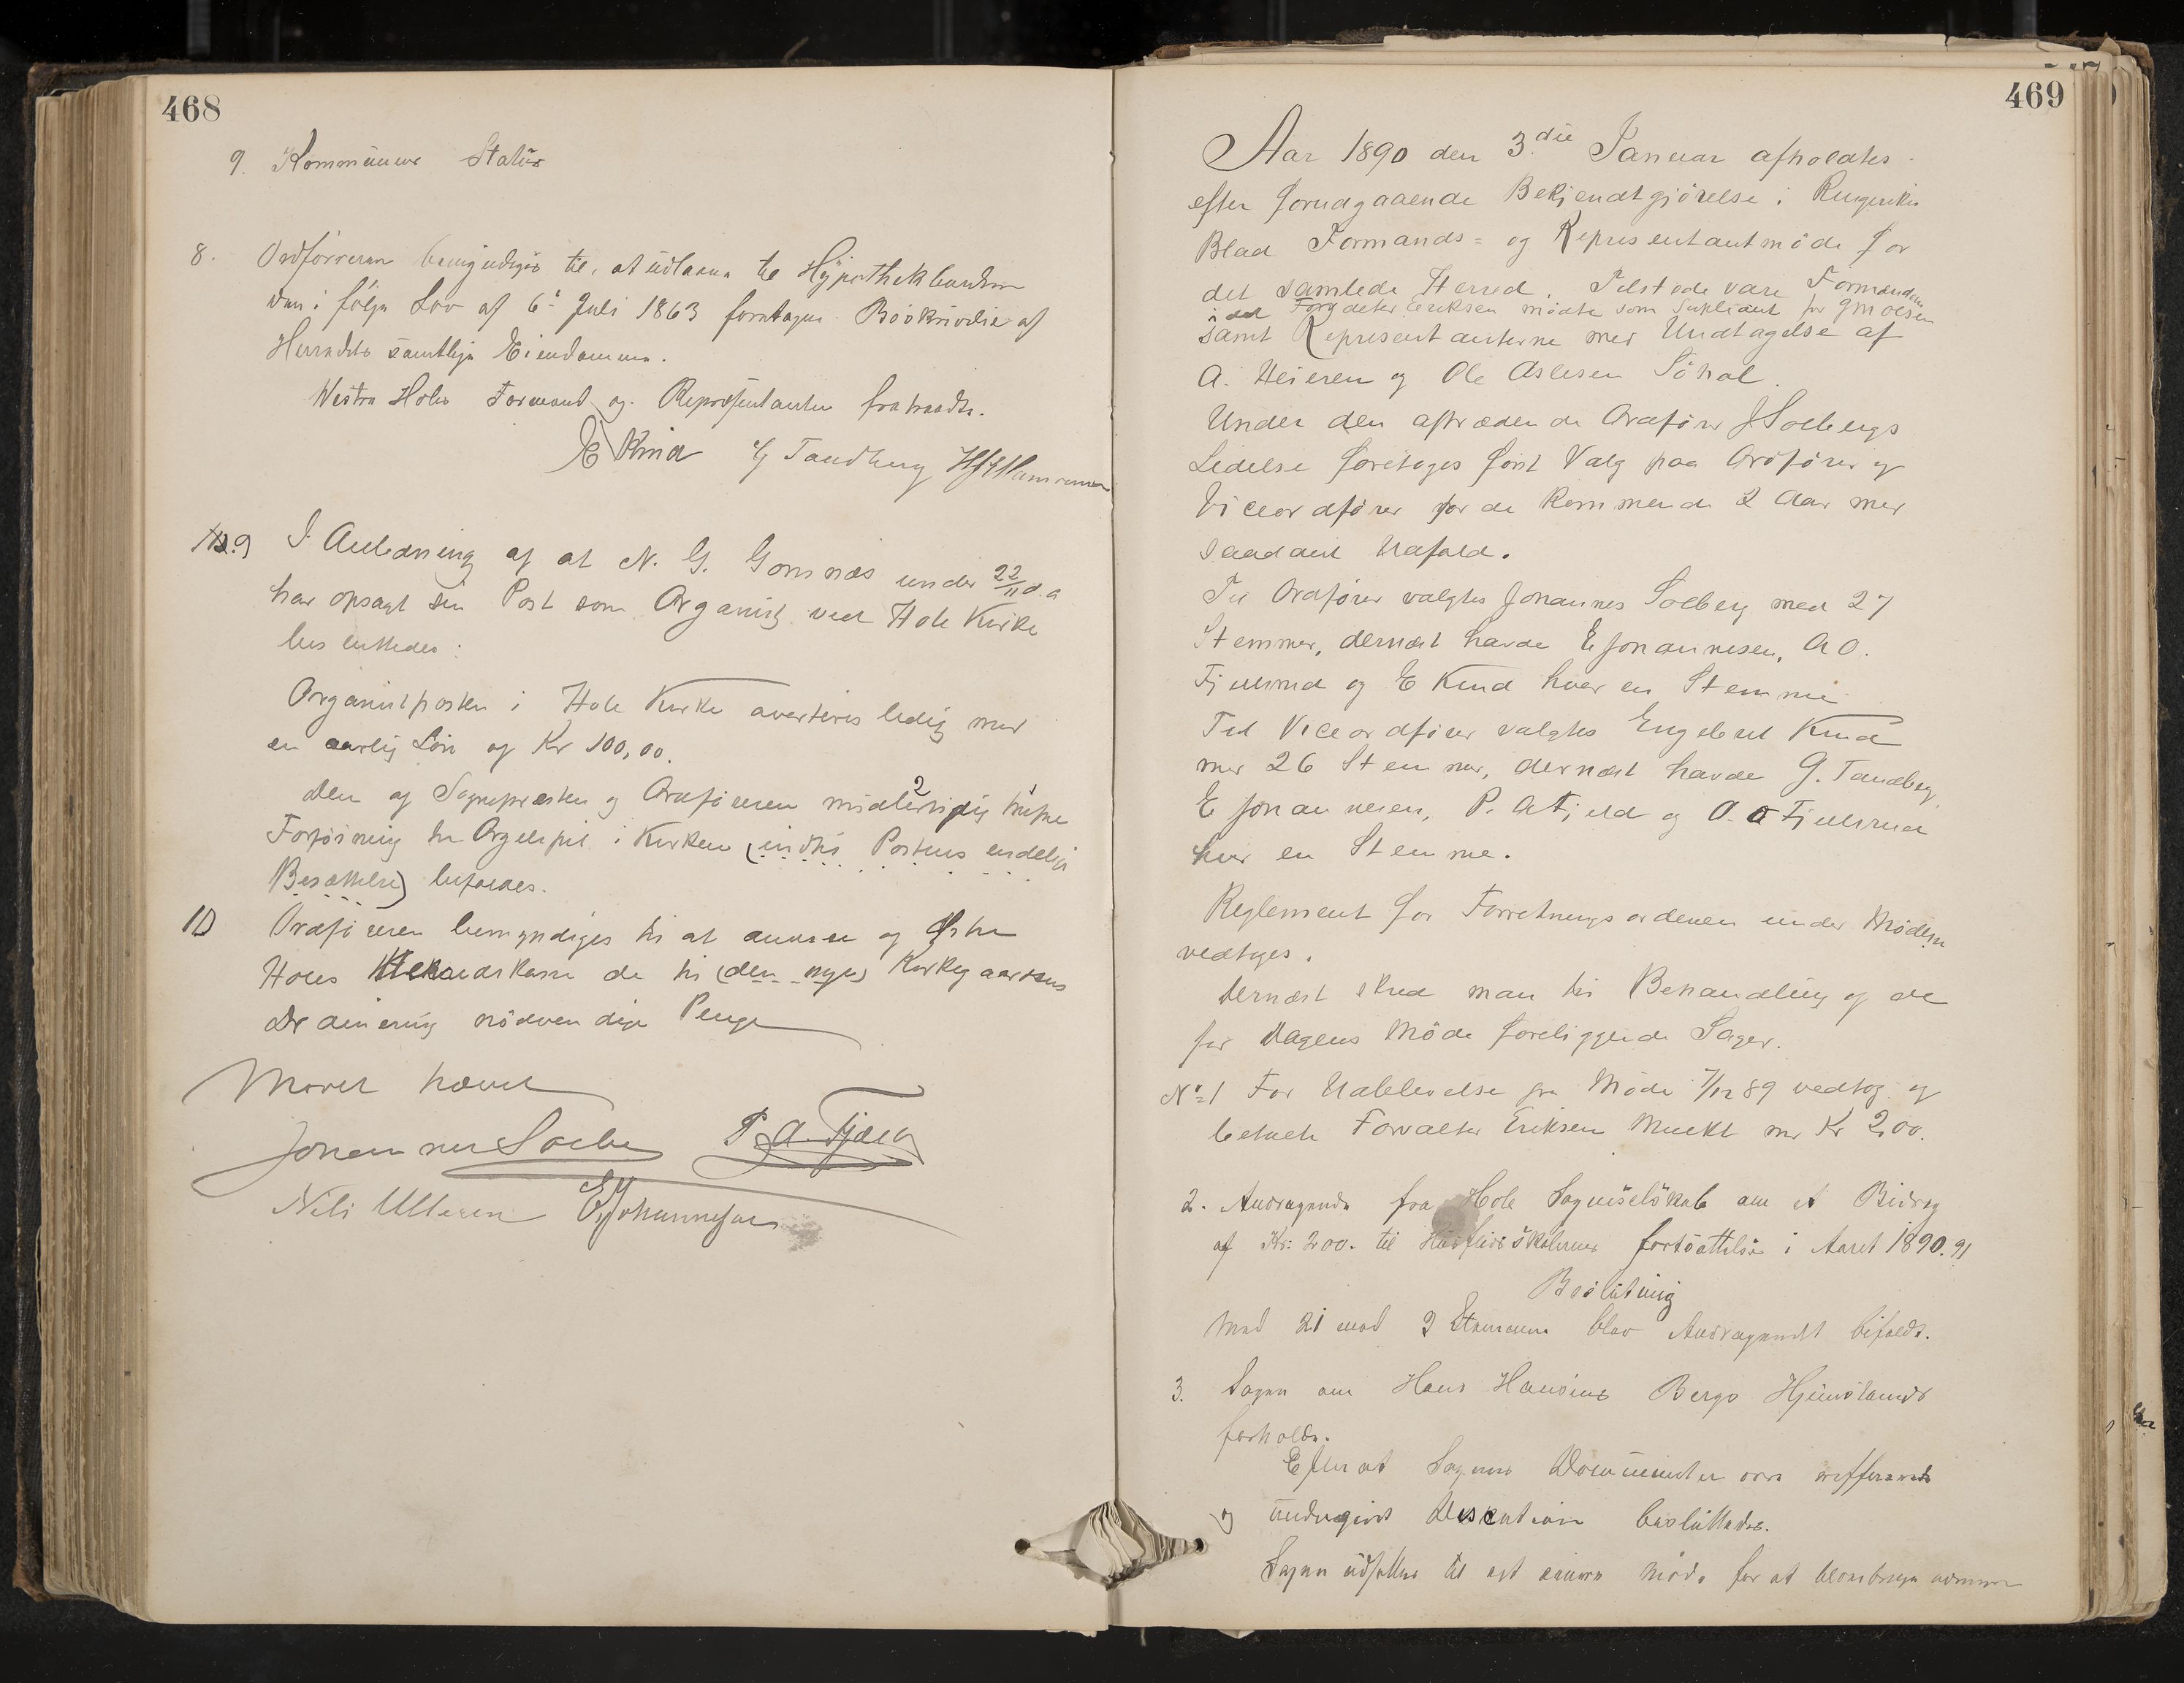 468
9. Kommunens Status
8. Ordføreren bemyndiges til, at udlaane til Hypothekbanken
den i følge Lov af 6te Juli 1863 foretagne af
Herredets samtlige Eiendomme.
Vestre Holes Formand og Repræsentanter fratraadte.
E Kind G Tandberg
No. 9 I Anledning af at N. G. Gomnæs under 22/11 d. a
har opsagt sin Post som Organist ved Hole Kirke
besluttedes:
Organistposten i Hole Kirke averteres ledig med
en aarlig Løn af Kr 100,00.
Den af Sognepresten og Ordføreren midlertidig trufne
Forføining for Orgelspil i Kirken (indtil Postens endelige
Besættelse) bifaldes.
10 Ordføreren bemyndiges til at anvise af Østre
Holes Herredskasse de til (den nye) Kirkegaardens
Drainering nødvendige Penge
Mødet hævet
Johannes Solberg P. A. Fjeld
Nils Ulleren E Johannesen
469
Aar 1890 den 3.die Januar afholdtes
efter forudgaaende Bekjendtgjørelse i Ringerikes
Blad Formands= og Representantmøde for
det samlede Herred. Tilstede vare Formændene
Eriksen mødte som Supleant for G Moesen
samt Representanterne med Undtagelse af
A. Heieren og Ole Aslesen Søhol.
Under den aftrædende Ordfører J Solbergs
Ledelse foretoges først Valg paa Ordfører og
Viceordfører for de kommende 2 Aar med
saadant Udfald.
Til Ordfører valgtes Johannes Solberg med 27
Stemmer, dernæst havde E Johannesen, A O.
Fjeldstad og E Kind hver en Stemme
Til Viceordfører valgtes Engebret Kind
med 26 Stemmer, dernæst havde G. Tandberg,
E Johannesen, P. A Fjeld og A. O Fjeldstad
hver en Stemme.
Reglement for Forretningsordenen under Møderne
vedtoges.
Dernæst skred man til Behandling af de
for Dagens Møde foreliggende Sager.
No 1 For Udeblevelse fra Møde 7/12 89 vedtog og
betalte Forvalter Eriksen Mulkt med Kr 2,00.
2. Andragende fra Hole Sogneselskab om et Bidrag
af Kr: 200. til Husflidsskolernes fortsættelse i Aaret 1890.91
Beslutning
Med 21 mod 9 Stemmer blev Andragendet bifaldt.
3. Sagen om Hans Hansens Bergs Hjemstavns
forholde.
Efter at Sagens Documenter vare refererede
og undergivet Discution besluttedes.
Sagen udsættes til et senere Møde for at